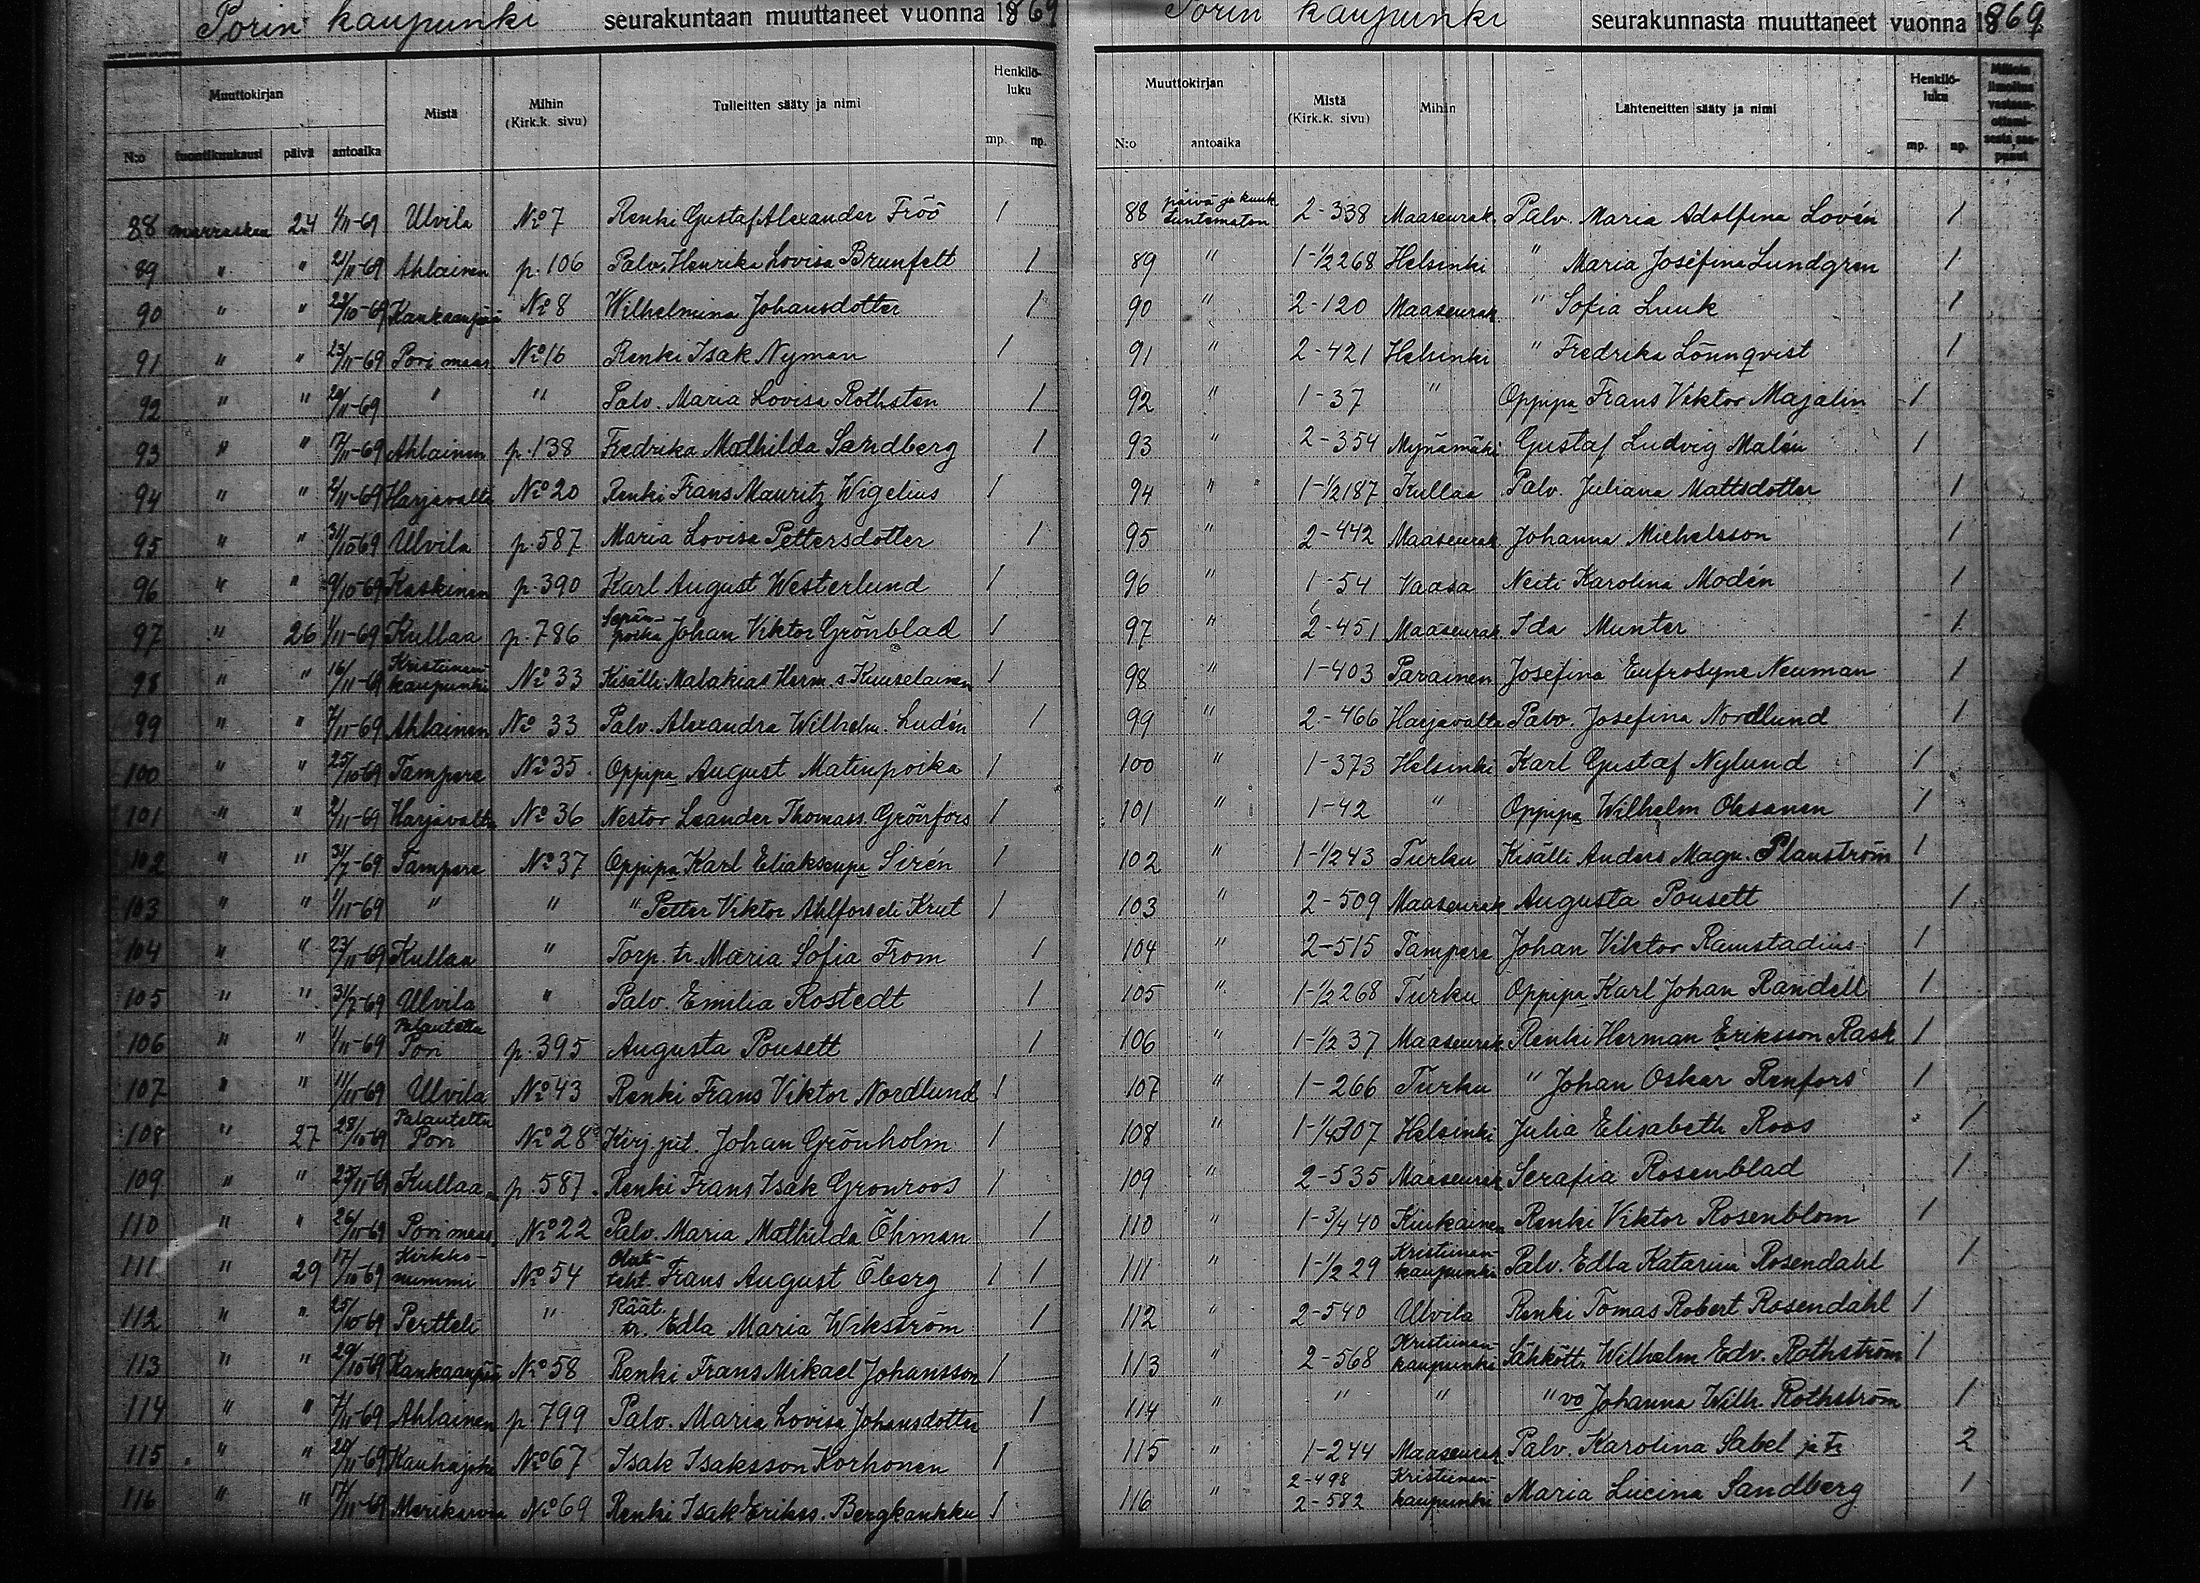 Porin kaupunki seurakuntaan muuttaneet vuonna 1869
Muuttokirjan Mistä Mihin (Kirk.k. sivu) Tulleitten sääty ja nimi Henkilö-luku
N:o tuontikuukausi päivä antoaika mp. np.
88 marraskuu 24 1/11-69 Ulvila No 7 Renki Gustaf Alexander Fröö 1
89 " " 21/11-69 Ahlainen p. 106 Palv. Henrika Lovisa Brunfelt 1
90 " " 23/10-69 Kankaanpää No 8 Wilhelmina Johansdotter 1
91 " " 23/11-69 Pori maas No 16 Renki Isak Nyman 1
92 " " 20/11-69 " " Palv. Maria Lovisa Rothsten 1
93 " " 17/11-69 Ahlainen p. 138 Fredrika Mathilda Sandberg 1
94 " " 2/11-69 Harjavalta No 20 Renki Frans Mauritz Wigelius 1
95 " " 31/10-69 Ulvila p. 587 Maria Lovisa Pettersdotter 1
96 " " 9/10-69 Kaskinen p. 390 Karl August Westerlund 1
97 " 26 1/11-69 Kullaa p. 786 Sepän-poika Johan Viktor Grönblad 1
98 " " 16/11-69 Kristiinan-kaupunki No 33 Kisälli Malakias Herm. s. Kuuselainen 1
99 " " 7/11-69 Ahlainen No 33 Palv. Alexandra Wilhelm. Ludén 1
100 " " 25/10-69 Tampere No 35. Oppipa August Matinpoika 1
101 " " 2/11-69 Harjavalta No 36 Nestor Leander Thomass. Grönfors 1
102 " " 31/7-69 Tampere No 37 Oppipa Karl Eliaksenpa Sirén 1
103 " " 1/11-69 " " " Petter Viktor Ahlfors eli Krut 1
104 " " 23/11-69 Kullaa " Torp. tr. Maria Sofia From 1
105 " " 31/7-69 Ulvila " Palv. Emilia Rostedt 1
106 " " 1/11-69 Palautettu Pori p. 395 Augusta Pousett 1
107 " " 11/11-69 Ulvila No 43 Renki Frans Viktor Nordlund 1
108 " 27 28/10-69 Palautettu Pori No 28 Kirj. pit. Johan Grönholm 1
109 " " 25/11-69 Kullaa p. 587. Renki Frans Isak Gronroos 1
110 " " 26/11-69 Pori maas. No 22 Palv. Maria Mathilda Öhman 1
111 " 29 17/10-69 Kirkko-nummi No 54 Frans August Öberg 1 1
112 " " 25/10-69 Pertteli " Räät. tr. Edla Maria Wikström 1
113 " " 29/10-69 Kankaanpää No 58 Renki Frans Mikael Johansson 1
114 " " 7/11-69 Ahlainen p. 799 Palv. Maria Lovisa Johansdotter 1
115 " " 20/11-69 Kauhajoki No 67 Isak Isaksson Korhonen 1
116 " " 17/11-69 Merikarvia No 69 Renki Isak Erikss. Bergkaukku 1
Porin kaupunki seurakunnasta muuttaneet vuonna 1869
Muuttokirjan Mistä (Kirk.k. sivu) Mihin Lähteneitten sääty ja nimi Henkilö-luku
N:o antoaika mp. np.
88 päivä ja kuuk tuntematon 2-338 Maaseurak. Palv. Maria Adolfina Lovén 1
89 " 1-1/2 268 Helsinki " Maria Joséfina Lundgren 1
90 " 2-120 Maaseurak " Sofia Luuk 1
91 " 2-421 Helsinki " Fredrika Lönnqvist 1
92 " 1-37 " Oppipa Frans Viktor Majalin 1
93 " 2-354 Mynämäki Gustaf Ludvig Malén 1
94 " 1-1/2 187 Kullaa Palv. Juliana Mattsdotter 1
95 " 2-442 Maaseurak Johanna Michelsson 1
96 " 1-54 Vaasa Neiti Karolina Modén 1
97 " 2-451 Maaseurak Ida Munter 1
98 " 1-403 Parainen Josefina Eufrosyne Neuman 1
99 " 2-466 Harjavalta Palv. Josefina Nordlund 1
100 " 1-373 Helsinki Karl Gustaf Nylund 1
101 " 1-42 " Oppipa Wilhelm Oksanen 1
102 " 1-1/2 43 Turku Kisälli Anders Magn. Planström 1
103 " 2-509 Maaseurak Augusta Pousett 1
104 " 2-515 Tampere Johan Viktor Ramstadius 1
105 " 1-1/2 268 Turku Oppipa Karl Johan Randell 1
106 " 1-1/2 37 Maaseurak Renki Herman Eriksson Rask 1
107 " 1-266 Turku " Johan Oskar Renfors 1
108 " 1-1/4 307 Helsinki Julia Elisabeth Roos 1
109 " 2-535 Maaseurak Serafia Rosenblad 1
110 " 1-3/4 40 Kiukainen Renki Viktor Rosenblom 1
111 " 1-1/2 29 Kristiinan-kaupunki Palv. Edla Katarina Rosendahl 1
112 " 2-540 Ulvila Renki Tomas Robert Rosendahl 1
113 " 2-568 Kristiinan-kaupunki Sähkött. Wilhelm Edv. Rothström 1
114 " " " " vo Johanna Wilh. Rothström 1
115 " 1-244 Maaseurak Palv. Karolina Sabel ja Tr 2
116 " 2-498 2-582 Kristiinan-kaupunki Maria Lucina Sandberg 1